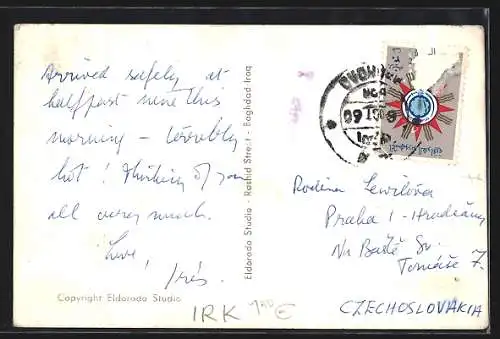 Arrived safely at
half past nine this
morning – terribly
hot! Thinking of you
all very much.
Love,
Iris.
Copyright Eldorado Studio
Eldorado Studio - Rashid Street - Baghdad-Iraq
IRK
Rodina Lewitova
Praha 1 - Hradčany
Na Baště Sv.
Tomáše 7.
CZECHOSLOVAKIA